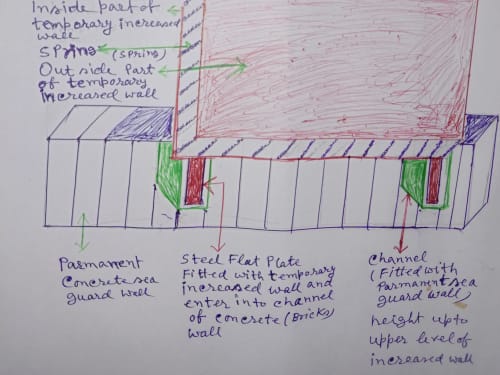 Inside part of
temporary increased
wall
SPring (SPring)
Out side Part
of temporary
increased wall
Parmanent
Concrete sea
guard wall
Steel Flat Plate
Fitted with temporary
increased wall and
enter into channel
of concrete (Bricks)
wall
Channel
(Fitted with
Parmanent sea
guard wall)
height up to
upper level of
increased wall